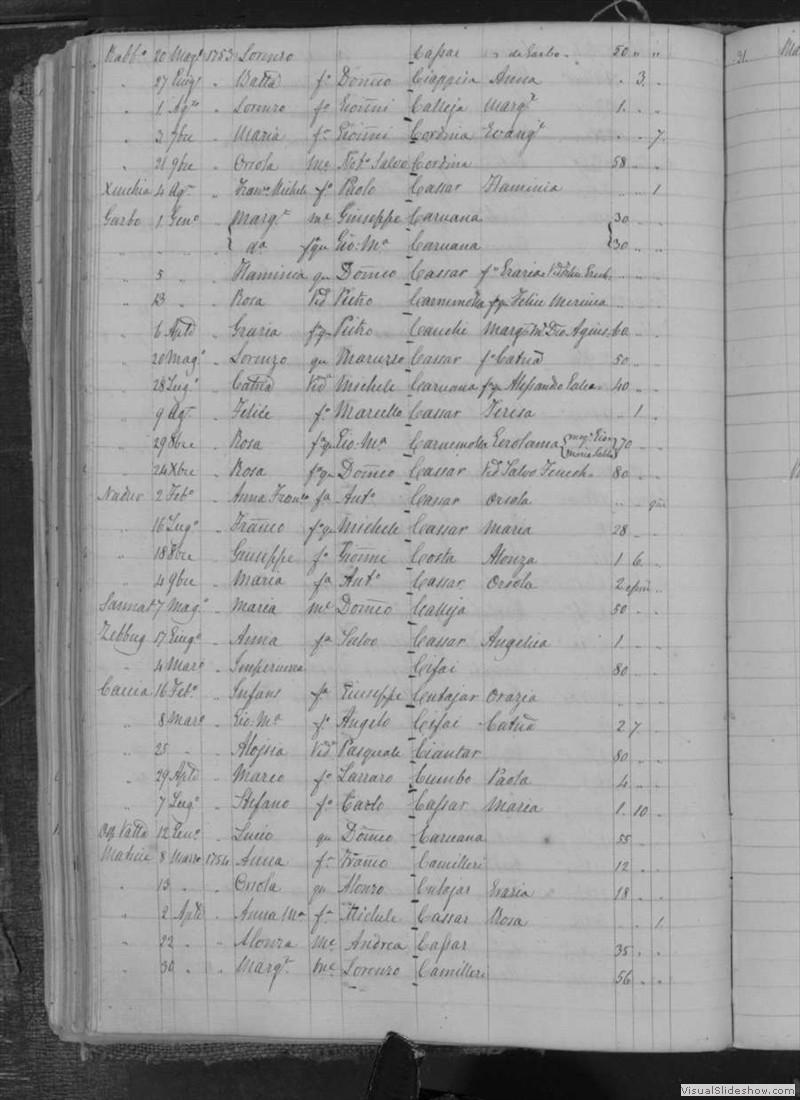 Rabb.o 20 Mag.o 1753 Lorenzo Cassar de Garbo. 50 " "
" 27 Giug.o " Batta f.o Dom̃co Ciappira Anna . 3 .
" 1 Ag.to " Lorenzo f.o Gioñni Calleja Marg.ta 1 .
" 3 7bre " Maria f.a Gioñni Cordina Evang.ta . . 7
" 21 9bre " Orsola m.e Not.o Salvo Cordina 58 . .
Xeuchia 4 Ag.to " Fran.co Michele f.o Paolo Cassar Flaminia . . 1
Garbo 1 Gen.o " Marg.ta m.e Giuseppe Caruana 30 . .
" " " d.a f.a qu Gio: M.a Caruana 30 " "
" 5 " Flaminia qu Dom̃co Cassar f.a
" 13 " Rosa Vid.a Pietro Felice
" 6 Aple Grazia f.a qu Pietro Cauchi Marg.ta Agius 60 . .
" 20 Mag.o Lorenzo qu Maruzzo Cassar f.o Catña 50 . .
" 28 Lug.o Catña Vid.a Michele Caruana f.a qu Alessandro 40 . .
" 9 Ag.to Felice f.o Marcello Cassar Teresa . 1 .
" 29 8bre Rosa f.a qu Gio: M.a Gerolama 70
" 24 Xbre Rosa f.a qu Dom̃co Cassar Vid.a Salvo 80 .
Nadur 2 Feb.o " Anna Fran.ca f.a Ant.o Cassar Orsola . .
" 16 Lug.o " Frañco f.o qu Michele Cassar Maria 28 . .
" 18 8bre Giuseppe f.o Gioñne Costa Alonza 1 6 .
" 4 9bre " Maria f.a Ant.o Cassar Orsola 2
Sannat 7 Mag.o " Maria m.e Dom̃co Calleja 50 . .
Zebbug 17 Giug.o " Anna f.a Salvo Cassar Angelica 1 .
" 4 Marzo " Imperuna Cifai 80 . .
Caccia 16 Feb.o " Infans f.a Giuseppe Cutajar Orazia . .
" 8 Marzo " Gio: M.a f.o Angelo Cifai Catña 2 7 .
" 25 " " Aloisia Vid.a Pasquale Ciantar 80 . .
" 29 Aple " Marco f.o Lazzaro Cumbo Paola 4 . .
" 7 Lug.o " Stefano f.o Carlo Cassar Maria 1 10 .
12 Gen.o " Lucio qu Dom̃co Caruana 55 . .
Matrice 8 Marzo 1754 Anna f.a Frañco Camilleri 12 . .
" 13 " " Orsola qu Alonzo Cutajar Grazia 18 . .
" 2 Aple " Anna M.a f.a Michele Cassar Rosa . . 1
" 22 " " Alonza m.e Andrea Cassar 35 . .
" 30 " " Marg.ta m.e Lorenzo Camilleri 56 . .
31.
Ma
VisualSlideshow.com